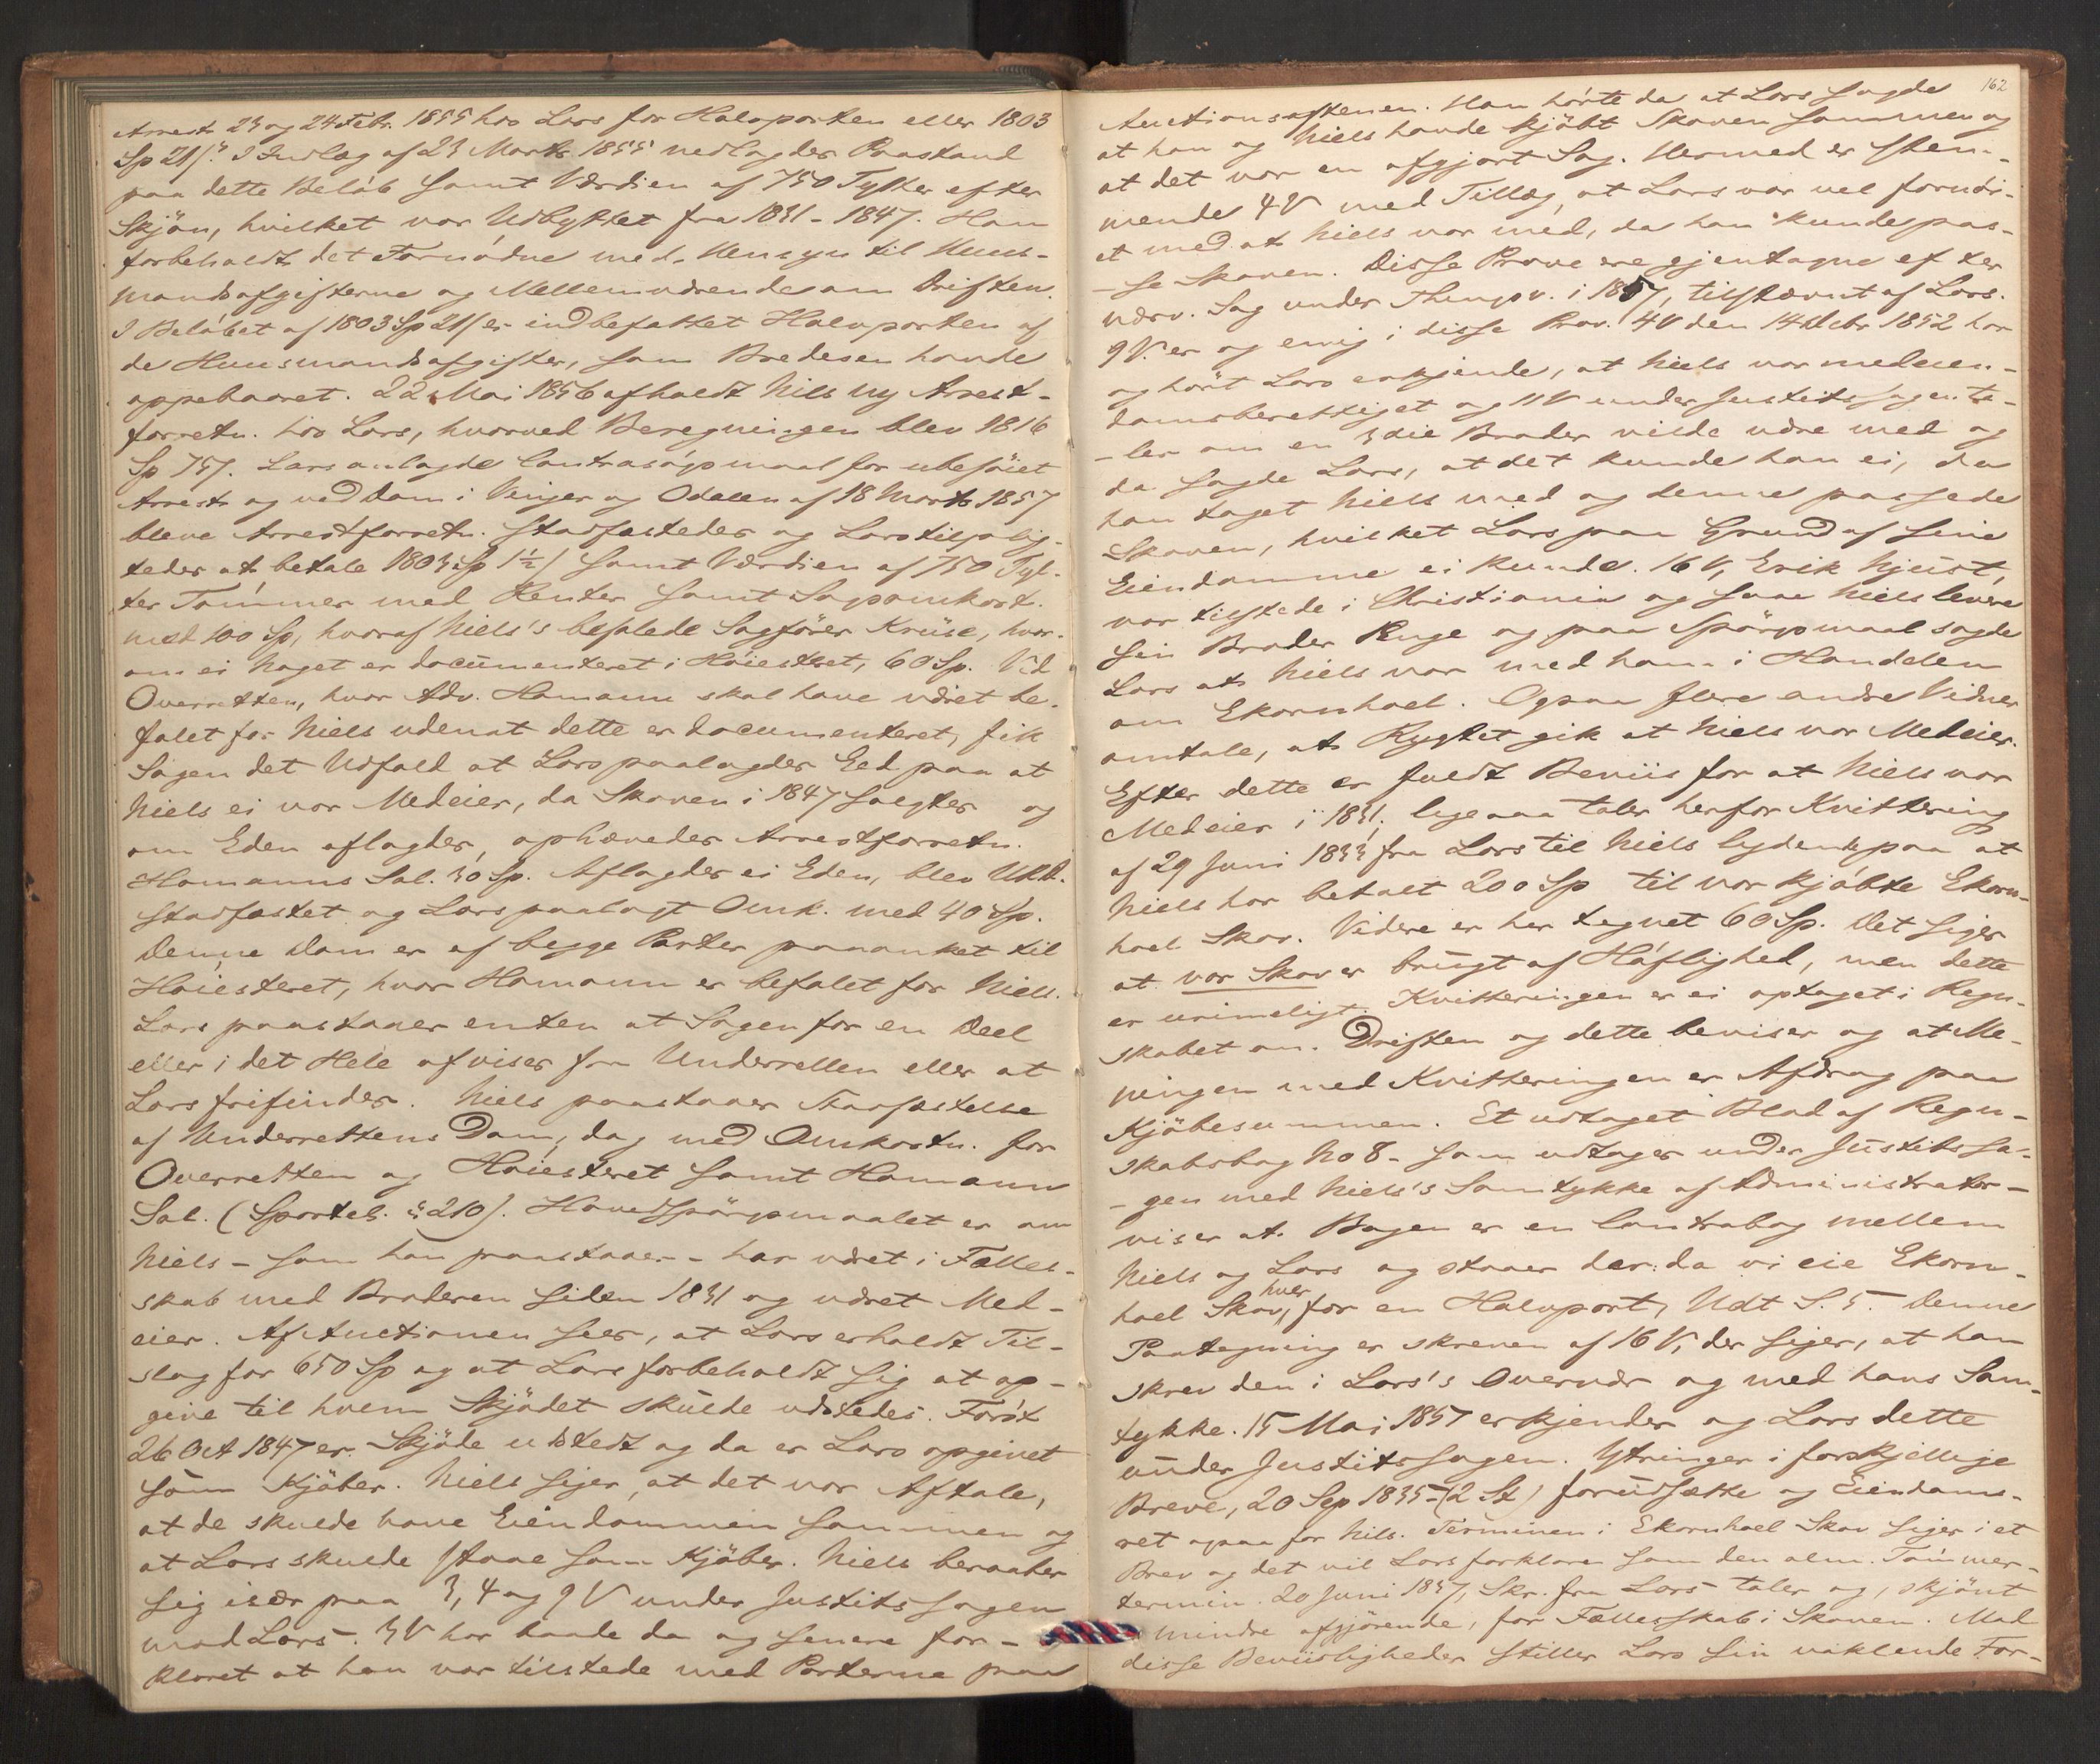 Arrest 23 og 24 Febr. 1855 hos Lars for Halvparten eller 1803
Sp 21/." I Indlæg af 23 Marts 1855 nedlagdes Paastand
paa dette Beløb samt Værdien af 750 Tylter efter
Skjøn, hvilket var Udbyttet fra 1831-1847. Han
forbeholdt det Fornødne med Hensyn til Huus-
mandsafgifterne og Mellemværende om Driften.
I Beløbet af 1803 Sp 21/ er indbefattet Halvparten af
de Huusmandsafgifter, som Bredesen havde
oppebaaret. 22 Mai 1856 afholdt Nils ny Arrest-
forretn. hos Lars, hvorved Beregningen blev 1816
Sp 75/. Lars anlagde Contrasøgsmaal for ubeføiet
Arrest og ved Dom i Vinger og Odalen af 18 Marts 1857
bleve Arrestforretn. stadfæstedes og Lars tilplig-
tedes at betale 1803 Sp 1½/ samt Værdien af 750 Tyl-
ter Tømmer med Renter samt Sagsomkost.
med 100 Sp, hvoraf Niels's befalede Sagfører Kruse, hvor-
om ei Noget er documenteret i Høiesteret, 60 Sp. Ved
Overretten, hvor Adv. Homann skal have været be-
falet for Niels uden at dette er documenteret, fik
Sagen det Udfald at Lars paalagdes Eed paa at
Niels ei var Medeier, da Skoven i 1847 solgtes og
om Eden aflagdes, ophævedes Arrestforretn.
Homanns Sal. 30 Sp. Aflagdes ei Eden, blev URD.
stadfæstet og Lars paalagt Omk. med 40 Sp.
Denne Dom er af begge Parter paaanket til
Høiesteret, hvor Homann er befalet for Niels.
Lars paastaaer enten at Sagen for en Deel
eller i det Hele afvises fra Underretten eller at
Lars frifindes. Niels paastaaer Stadfæstelse
af Underrettens Dom, dog med Omkostn. for
Overretten og Høiesteret samt Homann
Sal. (Sportel. § 210). Hovedspørgsmaalet er om
Niels - som han paastaaer - har været i Fælles-
skab med Broderen siden 1831 og været Med-
eier. Af Auctionen sees, at Lars erholdt Til-
slag for 650 Sp og at Lars forbeholdt sig at op-
give til hvem Skjødet skulde udstedes. Først
26 Oct 1847 er Skjøde udstedt og da er Lars opgivet
som Kjøber. Niels siger, at det var Aftale,
at de skulde have Eiendommen sammen og
at Lars skulde staae som Kjøber. Niels beraaber
sig især paa 3, 4 og 9 V under Justitssagen
mod Lars. 3 V har baade da og senere for-
klaret at han var tilstede med Parterne paa
162
Auctionsaftenen. Han hørte da at Lars sagde
at han og Niels havde kjøbt Skoven sammen og
at det var en afgjort Sag. Hermed er stem-
mende 4 V med Tillæg, at Lars var vel fornøi-
et med at Niels var med, da han kunde pas-
se Skoven. Disse Prove ere gjentagne efter
nærv. Sag under Thingsv. i 1857, tilstævnt af Lars.
9 V. er og enig i disse Prov. 4 V den 14 Debr 1852 har
og hørt Lars erkjende, at Niels var medeien-
domsberettiget og 11 V under Justitssagen ta-
ler om en 3die Broder vilde være med og
da sagde Lars, at det kunde han ei, da
han taget Niels med og denne passede
Skoven, hvilket Lars paa Grund af sine
Eiendomme ei kunde. 16 V, Erik Njust,
var tilstede i Christiania og saae Niels levere
sin Broder Penge og paa Spørgsmaal sagde
Lars at Niels var med ham i Handelen
om Ekornhoel. Ogsaa flere andre Vidner
omtale, at Rygtet gik at Niels var Medeier.
Efter dette er fuldt Beviis for at Niels var
Medeier i 1831; ligesaa taler herfor Kvittering
af 29 Juni 1833 fra Lars til Niels lydende paa at
Niels har betalt 200 Sp til vor kjøbte Ekorn-
hoel Skov. Videre er her tegnet 60 Sp. Det siges
at vor Skov er brugt af Høflighed, men dette
er urimeligt. Kvitteringen er ei optaget i Regn-
skabet om Driften og dette beviser og at Me-
ningen med Kvitteringen er Afdrag paa
Kjøbesummen. Et udtaget Blad af Regn-
skabsbog No 8 - som udtoges under Justitssa-
gen med Niels's Samtykke af Administrator -
viser at Bogen er en Contrabog mellem
Niels og Lars og staaer der: da vi eie Ekorn-
hoel Skov, hver for en Halvpart, Udt S. 5. Denne
Paategning er skreven af 16 V, der siger, at han
skrev den i Lars's Overvær og med hans Sam-
tykke. 15 Mai 1857 erkjender og Lars dette
under Justitssagen. Ytringer i forskjellige
Breve, 20 Sep 1835 - (2 St) forudsætte og Eiendoms-
ret ogsaa for Nils. Terminen i Ekornhoel Skov siges i et
Brev og det vil Lars forklare som den alm. Tømmer-
termin. 20 Juni 1837, Skr. fra Lars taler og, skjønt
mindre afgjørende, for Fællesskab i Skoven. Mod
disse Beviisligheder stiller Lars sin vaklende For-